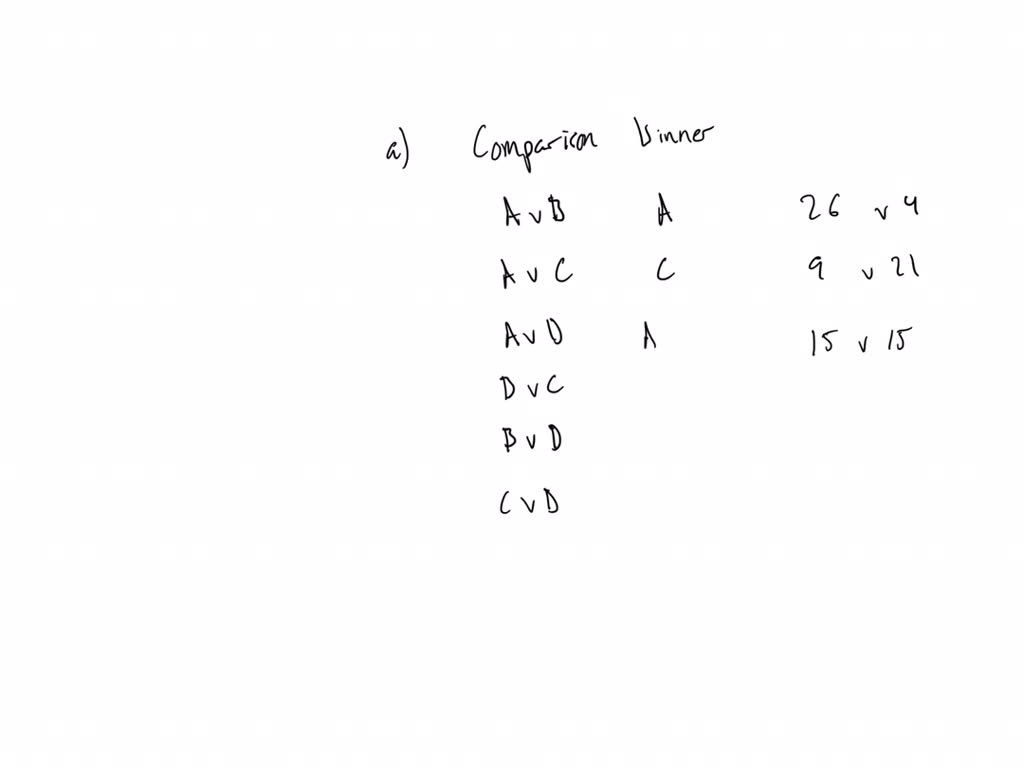 a) Comparison Winner
A v B A 26 v 4
A v C C 9 v 21
A v D A 15 v 15
D v C
B v D
C v D